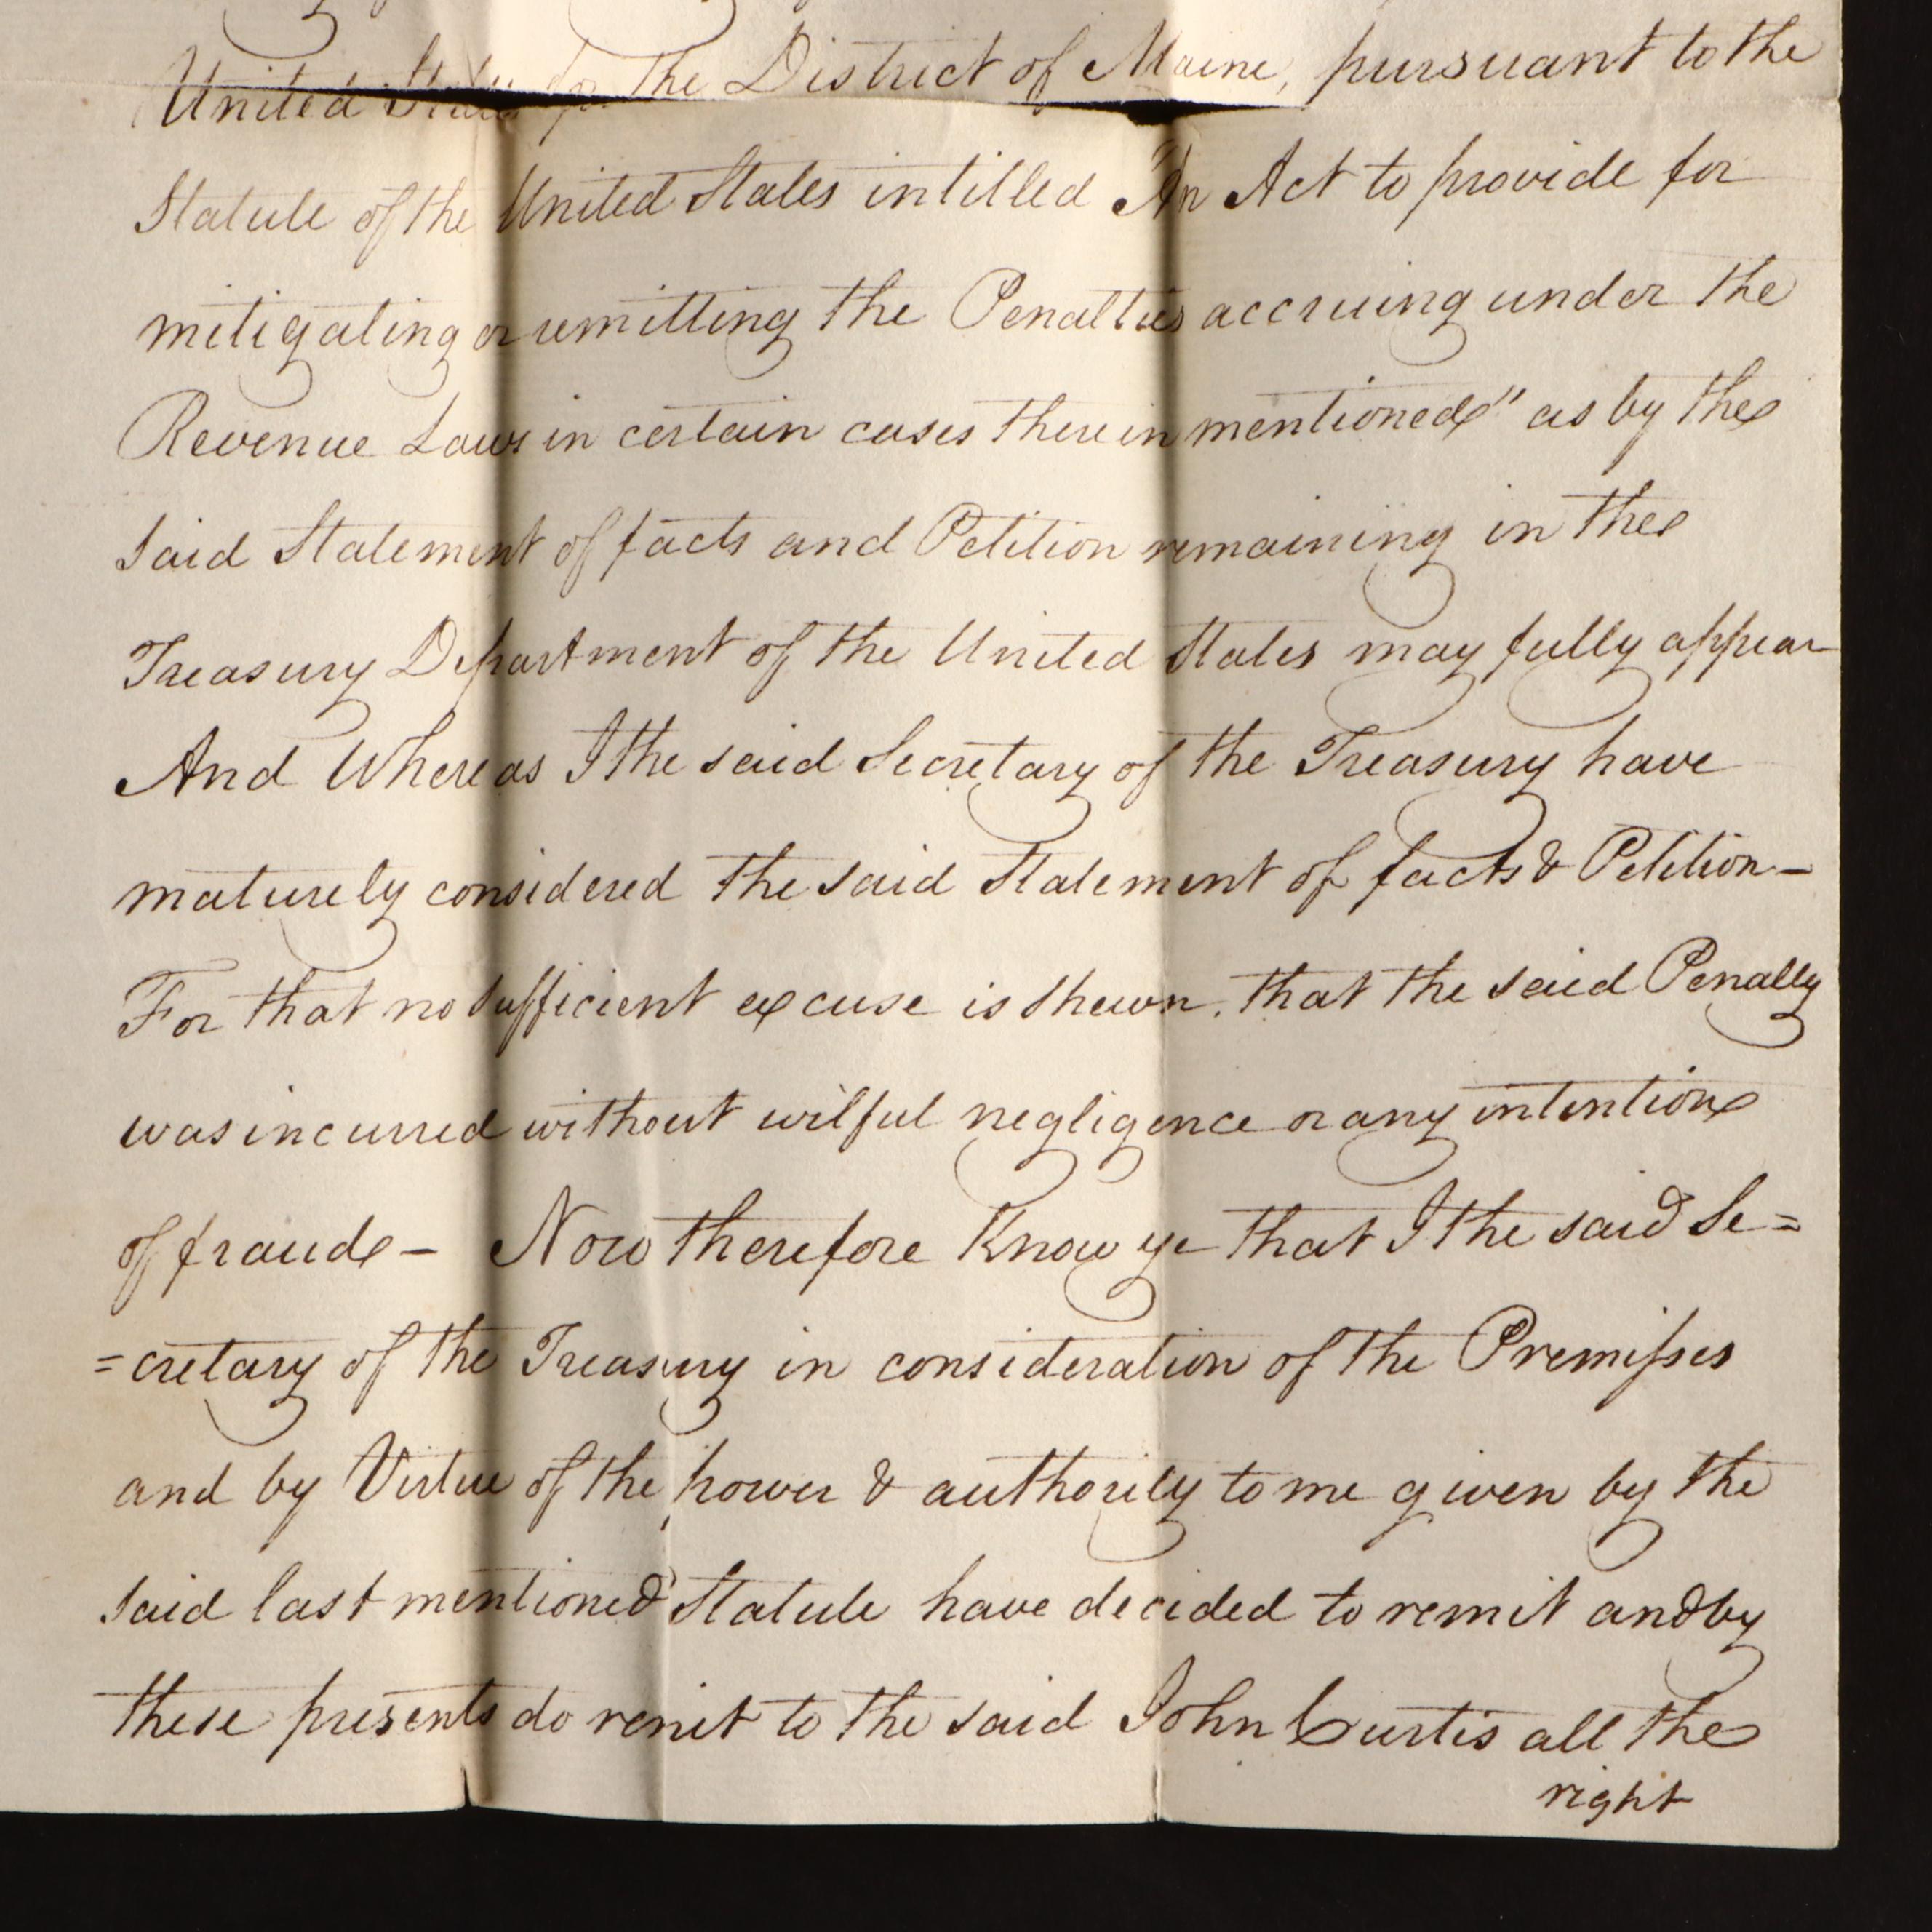 United States for the District of Maine, pursuant to the
Statute of the United States intitled "An Act to provide for
mitigating or remitting the Penalties accruing under the
Revenue Laws in certain cases therein mentioned" as by the
said Statement of facts and Petition remaining in the
Treasury Department of the United States may fully appear
And Whereas I the said Secretary of the Treasury have
maturely considered the said Statement of facts & Petition -
For that no sufficient excuse is shewn, that the said Penalty
was incurred without wilful negligence or any intention
of fraud - Now therefore Know ye that I the said Se=
=cretary of the Treasury in consideration of the Premisses
and by Virtue of the power & authority to me given by the
said last mentioned Statute have decided to remit and by
these presents do remit to the said John Curtis all the
right